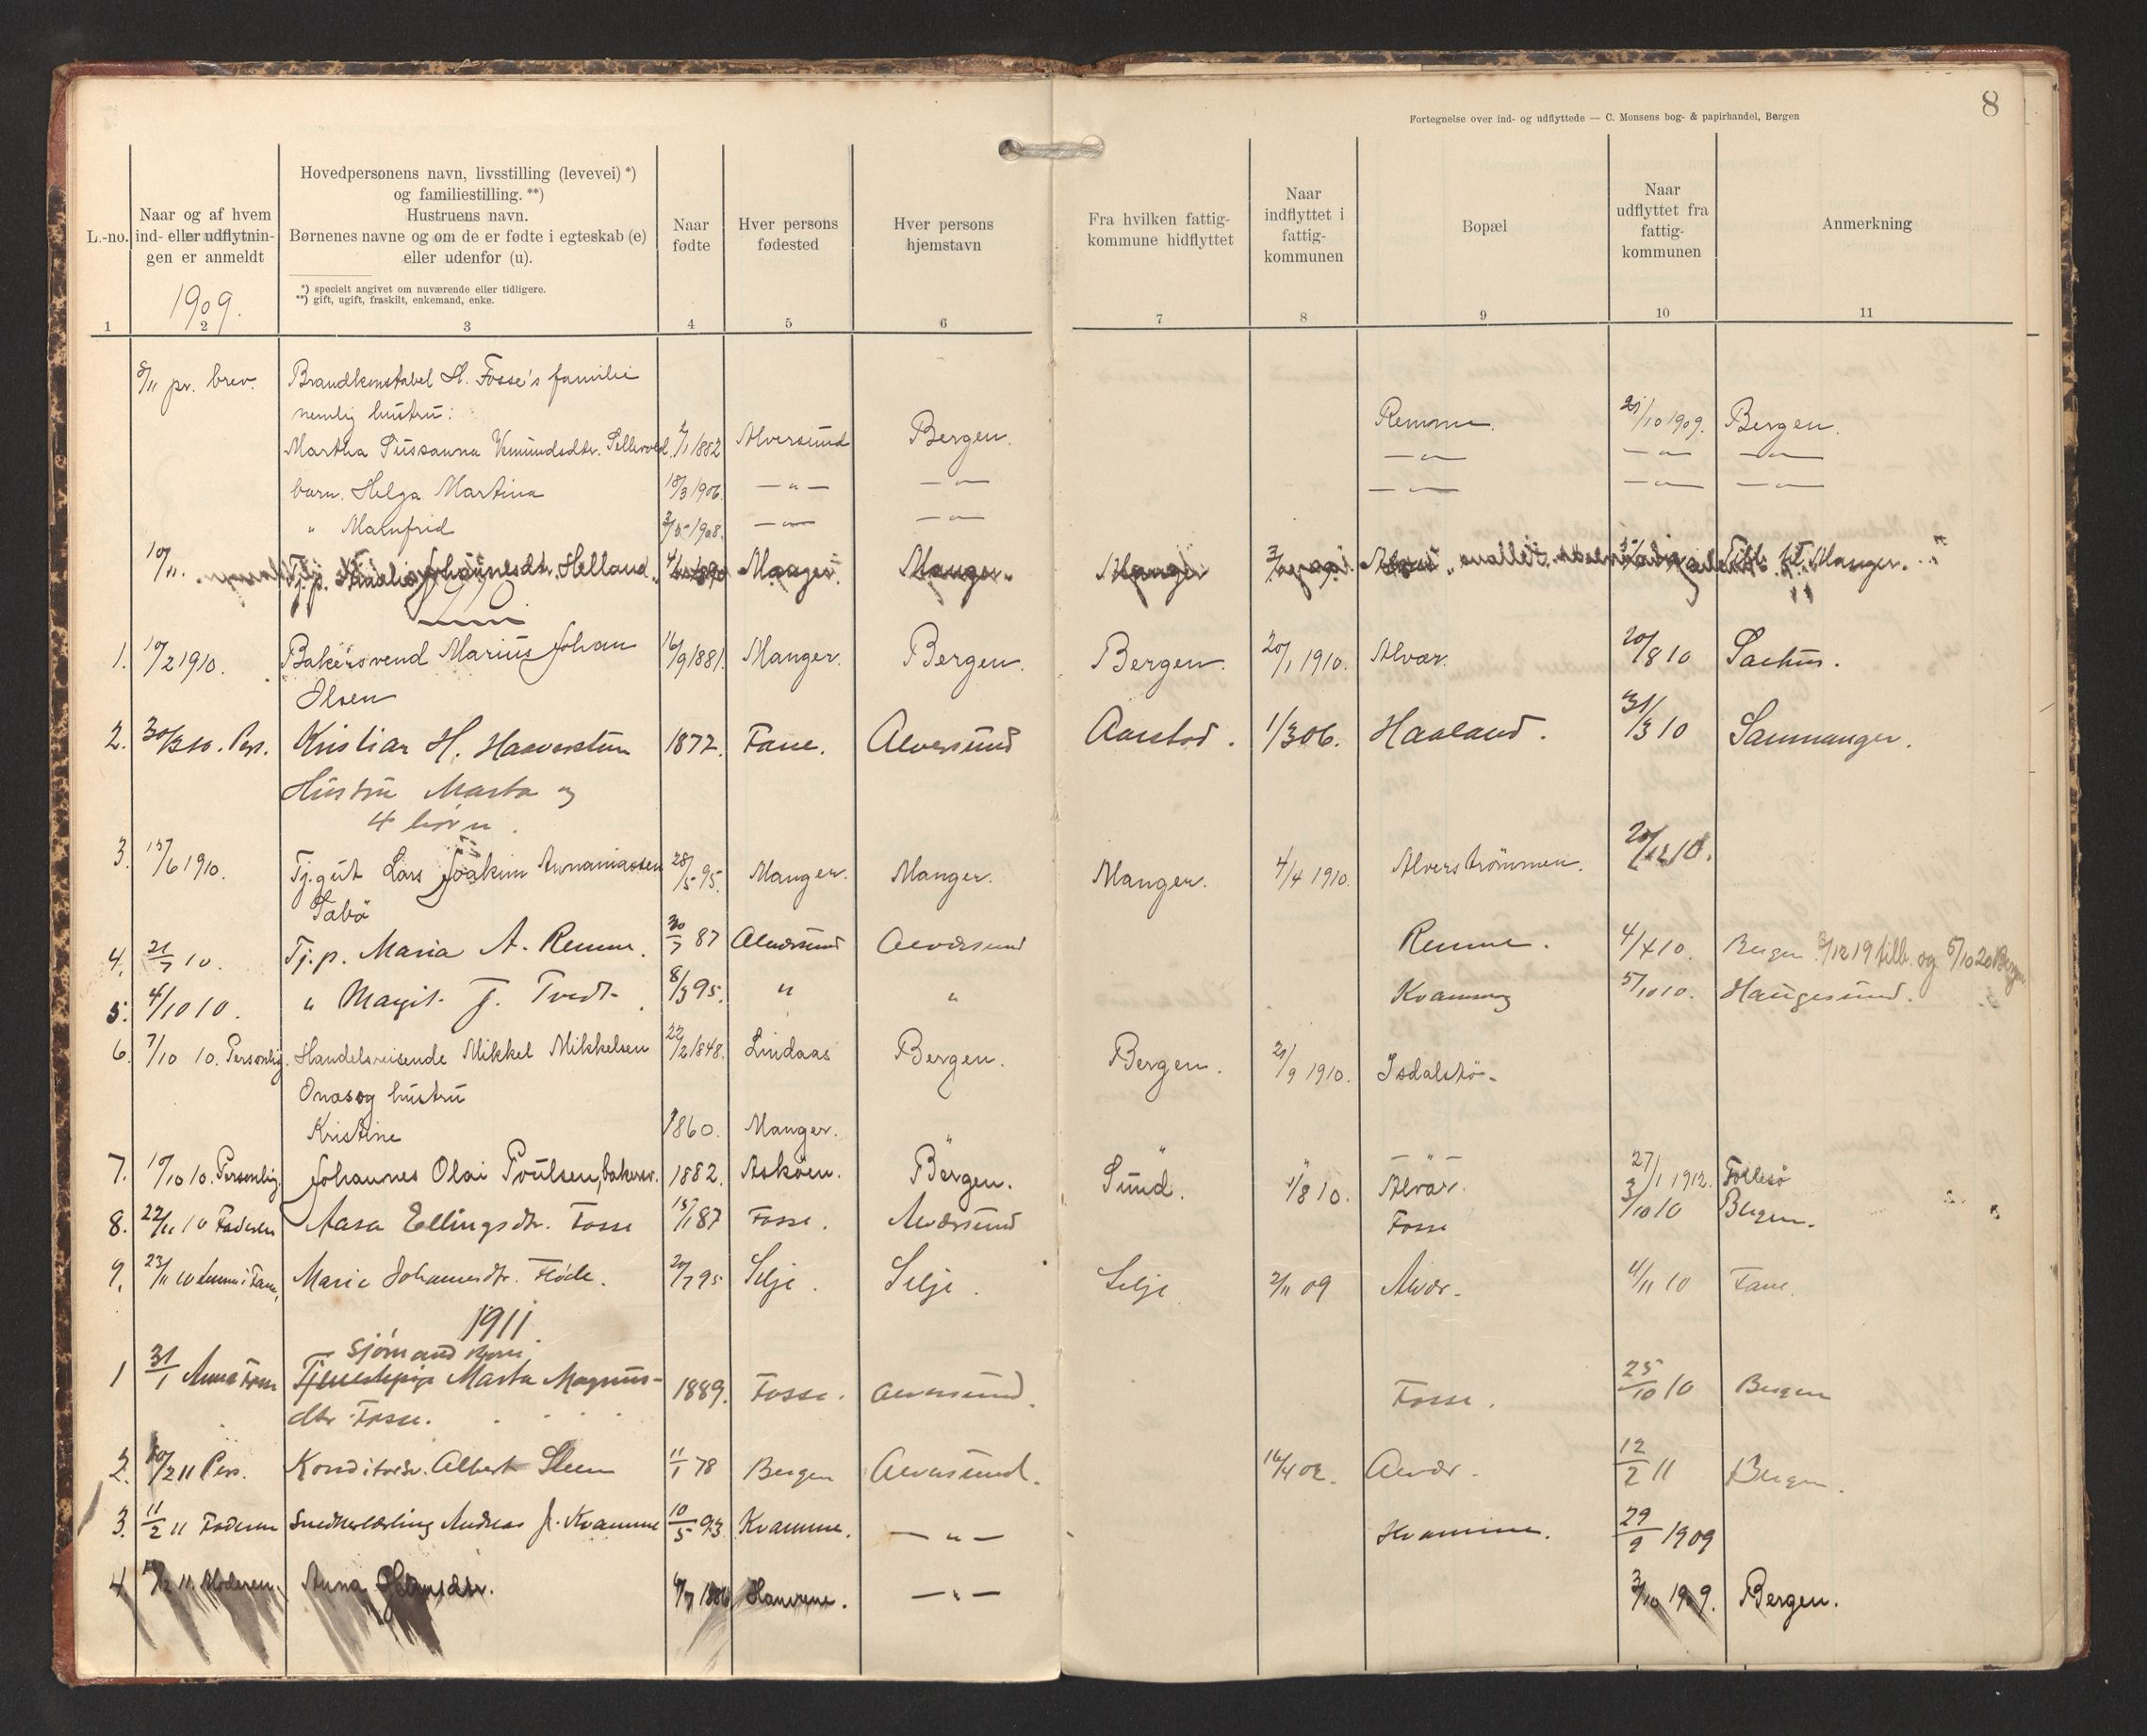 8
Fortegnelse over ind- og udflyttede — C. Monsens bog- & papirhandel, Bergen
L.-no.
Naar og af hvem
ind- eller udflytnin-
gen er anmeldt
Hovedpersonens navn, livsstilling (levevei) *)
og familiestilling. **)
Hustruens navn.
Børnenes navne og om de er fødte i egteskab (e)
eller udenfor (u).
*) specielt angivet om nuværende eller tidligere.
**) gift, ugift, fraskilt, enkemand, enke.
Naar
fødte
Hver persons
fødested
Hver persons
hjemstavn
Fra hvilken fattig-
kommune hidflyttet
Naar
indflyttet i
fattig-
kommunen
Bopæl
Naar
udflyttet fra
fattig-
kommunen
Anmerkning
1909.
1 2 3 4 5 6 7 8 9 10 11
8/11 pr. brev. Brandkonstabel H. Fosse's familie
nemlig hustru: Remme. 21/10 1909. Bergen.
Martha Sussanna Vemundsdtr. 2/1 1882 Alversund Bergen. —"— —"— —"—
barn. Helga Martina 18/3 1906. —"— —"— —"— —"— —"—
" Manfrid 3/5 1908. —"— —"—
10/11. Tj.p. Johannesdtr. Helland Manger. Manger. Manger Manger.
1910
1. 10/2 1910. Bakersvend Marius Johan 16/9 1881. Manger. Bergen. Bergen. 20/1 1910. Alvær. 20/8 10
Olsen
2. 30/3 10. Pers. Kristian H. Haaverstun 1872. Fane. Alversund Aarstad. 1/3 06. Haaland. 31/3 10 Sammanger.
Hustru Marta og
4 børn.
3. 15/6 1910. Tj.gut Lars Joakim Annaniassen 28/5 95. Manger. Manger. Manger. 4/4 1910. Alverströmmen. 20/12 10.
Tabö
4. 21/7 10. Tj.p. Maria A. Remme. 30/7 87 Alversund Alversund Remme. 4/4 10. Bergen 3/12 19 tilb. og 5/10 20 Bergen
5. 4/10 10. " Magit J. Tvedt 8/3 95. " " Kvamme 5/10 10. Haugesund.
6. 7/10 10. Personlig. Handelsreisende Mikkel Mikkelsen 22/2 1848. Lindaas Bergen. Bergen. 21/9 1910. Isdalstö.
Onas og hustru
Kristine 1860. Manger. " " " "
7. 10/10 10. Personlig. Johannes Olai Poulsen, bakersv. 1882. Asköen. Bergen. Sund. 1/8 10. Alvær. 27/1 1912. Follesö
8. 22/11 10 Faderen Aasa Ellingsdtr. Fosse 15/11 87 Fosse. Alversund Fosse 3/10 10 Bergen.
9. 23/11 10 Fane. Marie Johannesdtr. Flöde. 20/7 95 Selje. Selje. Selje 2/11 09 Alvær. 4/11 10 Fane.
1911.
Sjömand
1 31/1 Anna Fosse Tjenestepige Marta Magnus- 1889. Fosse. Alversund. Fosse. 25/10 10 Bergen
dtr. Fosse.
2. 10/2 11 Pers. Konditorsv. Albert Steen 11/1 78 Bergen Alversund. 16/4 02. Alvær. 12/2 11 Bergen.
3. 11/2 11 Faderen Snedkerlærling Andreas J. Kvamme 10/5 93 Kvamme. —"— Kvamme. 29/9 1909
4. 11. Moderen. Anna 1886 —"— 3/10 1909. Bergen.